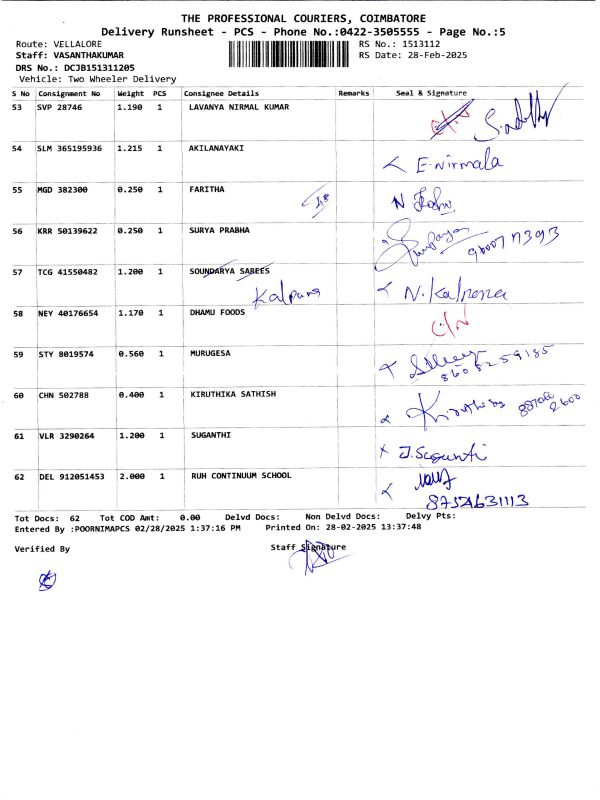 THE PROFESSIONAL COURIERS, COIMBATORE
Delivery Runsheet - PCS - Phone No.:0422-3505555 - Page No.:5
Route: VELLALORE RS No.: 1513112
Staff: VASANTHAKUMAR RS Date: 28-Feb-2025
DRS No.: DCJB151311205
Vehicle: Two Wheeler Delivery
S No Consignment No Weight PCS Consignee Details Remarks Seal & Signature
53 SVP 28746 1.190 1 LAVANYA NIRMAL KUMAR
54 SLM 365195936 1.215 1 AKILANAYAKI E.Nirmala
55 MGD 382300 0.250 1 FARITHA
56 KRR 50139622 0.250 1 SURYA PRABHA
57 TCG 41550482 1.200 1 SOUNDARYA SAREES
Kalpana N.Kalpana
58 NEY 40176654 1.170 1 DHAMU FOODS
59 STY 8019574 0.560 1 MURUGESA
60 CHN 502788 0.400 1 KIRUTHIKA SATHISH
61 VLR 3290264 1.200 1 SUGANTHI J.Suganti
62 DEL 912051453 2.000 1 RUH CONTINUUM SCHOOL
8754631113
Tot Docs: 62 Tot COD Amt: 0.00 Delvd Docs: Non Delvd Docs: Delvy Pts:
Entered By :POORNIMAPCS 02/28/2025 1:37:16 PM Printed On: 28-02-2025 13:37:48
Verified By Staff Signature